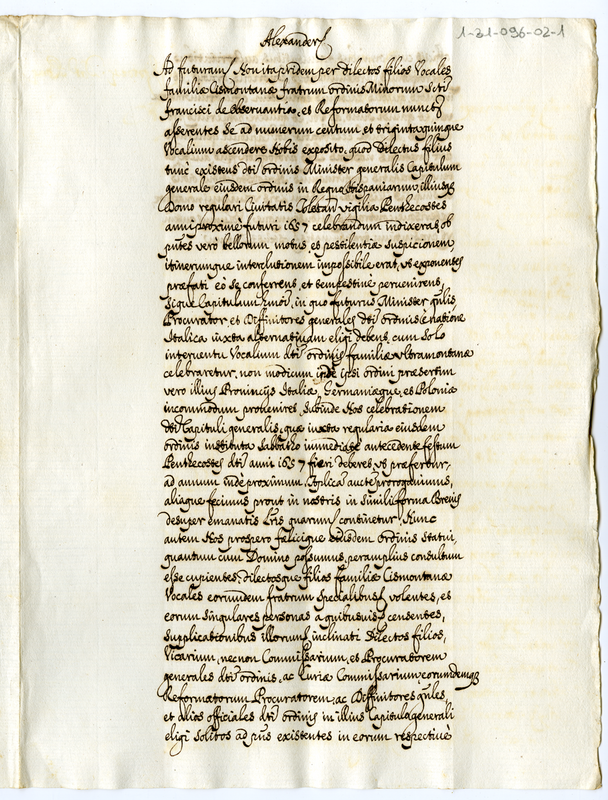 1-21-096-02-1
Alexander
Ad futuram Non ita pridem per dilectos filios Vocales
familiæ Cismontanæ fratrum ordinis Minorum Scti
francisci de obseruantia, et Reformatorum nuncĝ
asserentes se ad numerum centum, et triginta quinque
Vocalium ascendere Nobis exposito, quod Dilectus filius
tunc existens dti ordinis Minister generalis Capitulum
generale eiusdem ordinis in Regno hispaniarum, illiusq
Domo regulari Ciuitatis Toletan vigilia Penthecostes
anni proxime futuri 1657 celebrandum indixerat, ob
pntes vero bellorum motus et pestilentiæ suspicionem,
itinerumque interclusionem impossibile erat, vt exponentes
præfati eo se conferrent, et tempestiue peruenirent,
sicque Capitulum hmoi, in quo futurus Minister gnlis
Procurator, et Diffinitores generales dti ordinis è natione
Italica iuxta alternatiuam eligi debent, cum solo
interuentu Vocalium dti ordinis familiæ vltramontanæ
celebraretur, non modicum inde ipsi ordini præsertim
vero illius Prouincijs Italiæ, Germaniæque, et Poloniæ
incommodum proueniret, subinde Nos celebrationem
dti Capituli generalis, quæ iuxta regularia eiusdem
ordinis instituta Sabbatho immediatè antecedente festum
Penthecostes dti anni 1657 fieri deberet, vt præfertur,
ad annum inde proximum, Aplica aucte prorogauimus,
aliaque fecimus prout in nostris in simili forma Breuis
desuper emanatis Lris quarum continetur, Nunc
autem Nos prospero fælicique eiusdem ordinis statui,
quantum cum Domino possumus, peramplius consultum
esse cupientes, dilectosque filios familiæ Cismontanæ
Vocales eorumdem fratrum specialibus volentes, et
eorum singulares personas a quibusuis censentes,
supplicationibus illorum inclinati Dilectos filios,
Vicarium, necnon Commissarium, et Procuratorem
generales dti ordinis, ac Curiæ Commissarium eorumdemq
Reformatorum Procuratorem, ac Diffinitores gnles,
et alios officiales dti ordinis in illius Capitulo generali
eligi solitos ad pns existentes in eorum respectiue